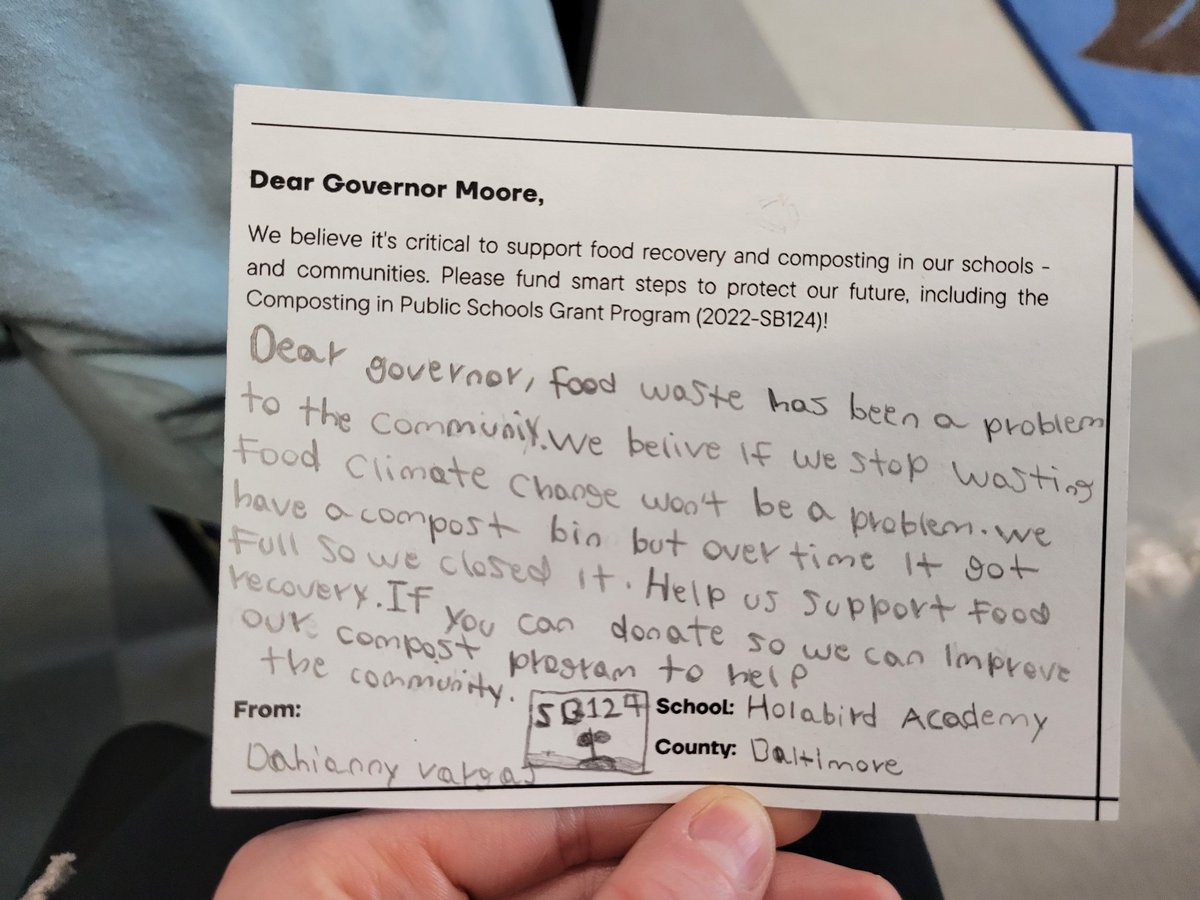 Dear Governor Moore,
We believe it's critical to support food recovery and composting in our schools -
and communities. Please fund smart steps to protect our future, including the
Composting in Public Schools Grant Program (2022-SB124)!
Dear governor, food waste has been a problem
to the community. We belive if we stop wasting
Food Climate Change won't be a problem. we
have a compost bin but over time it got
Full so we closed it. Help us support food
recovery. If you can donate so we can improve
our compost program to help
the community.
From:
Dahianny vargas
SB124
School: Holabird Academy
County: Baltimore